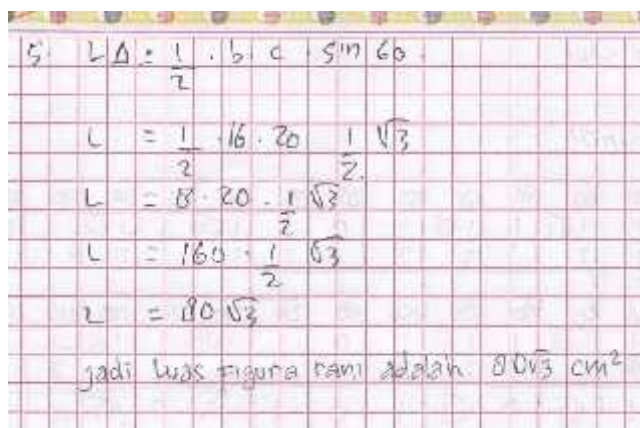 5. L∆ = 1/2 . b . c . sin 60.
L = 1/2 . 16 . 20 1/2 √3
L = 8 . 20 . 1/2 √3
L = 160 . 1/2 √3
L = 80 √3
jadi luas Figura rami adalah 80√3 cm²